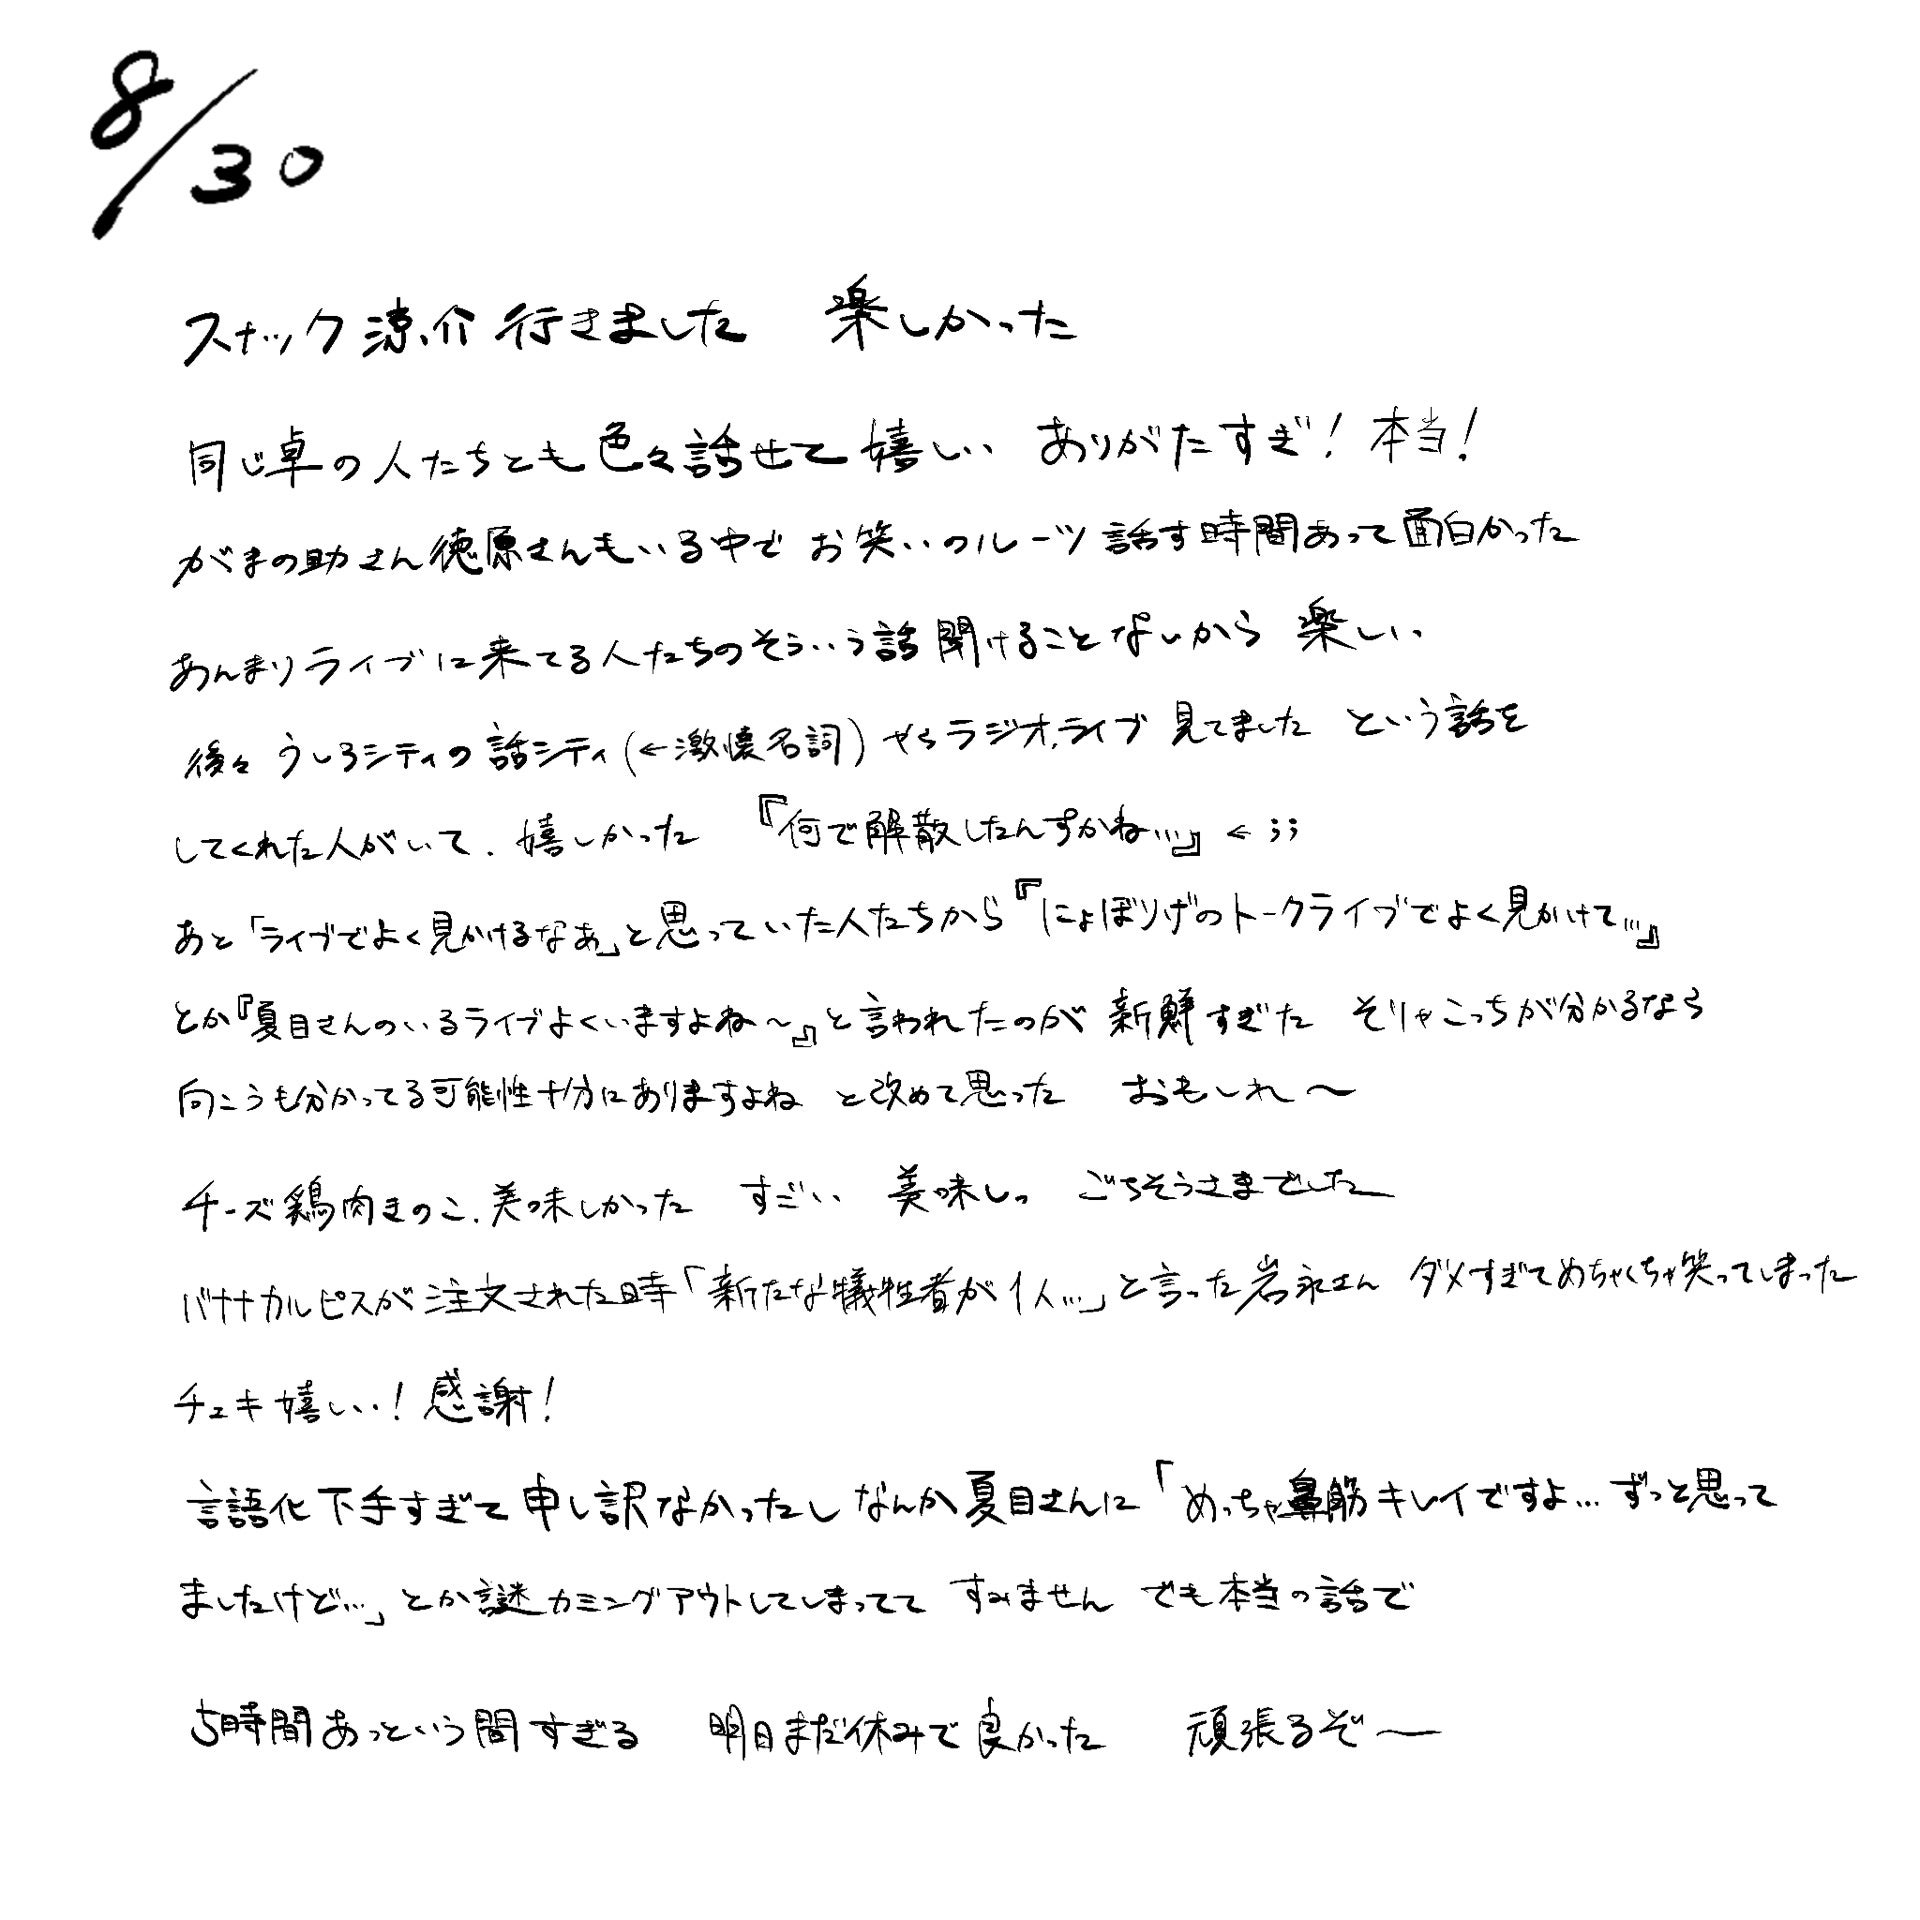 8/30
スナック涼介行きました 楽しかった
同じ卓の人たちとも色々話せて嬉しい ありがたすぎ!本当!
がまの助さん徳原さんもいる中でお笑いのルーツ話す時間あって面白かった
あんまりライブに来てる人たちのそういう話聞けることないから楽しい
後々うしろシティの話シティ(←激懐名詞)やらラジオ、ライブ見てました という話を
してくれた人がいて、嬉しかった 『何で解散したんすかね…』←;;
あと「ライブでよく見かけるなぁ」と思っていた人たちから『にょぼりげのトークライブでよく見かけて…』
とか『夏目さんのいるライブよくいますよね〜』と言われたのが新鮮すぎた そりゃこっちが分かるなら
向こうも分かってる可能性十分にありますよね と改めて思った おもしれ〜
チーズ鶏肉きのこ、美味しかった すごい 美味しっ ごちそうさまでした
バナナカルピスが注文された時「新たな犠牲者が1人…」と言った岩永さん ダメすぎてめちゃくちゃ笑ってしまった
チェキ嬉しい!感謝!
言語化下手すぎて申し訳なかったしなんか夏目さんに「めっちゃ鼻筋キレイですよ…ずっと思って
ましたけど…」とか謎カミングアウトしてしまってて すみません でも本当の話で
5時間あっという間すぎる 明日まだ休みで良かった 頑張るぞ〜